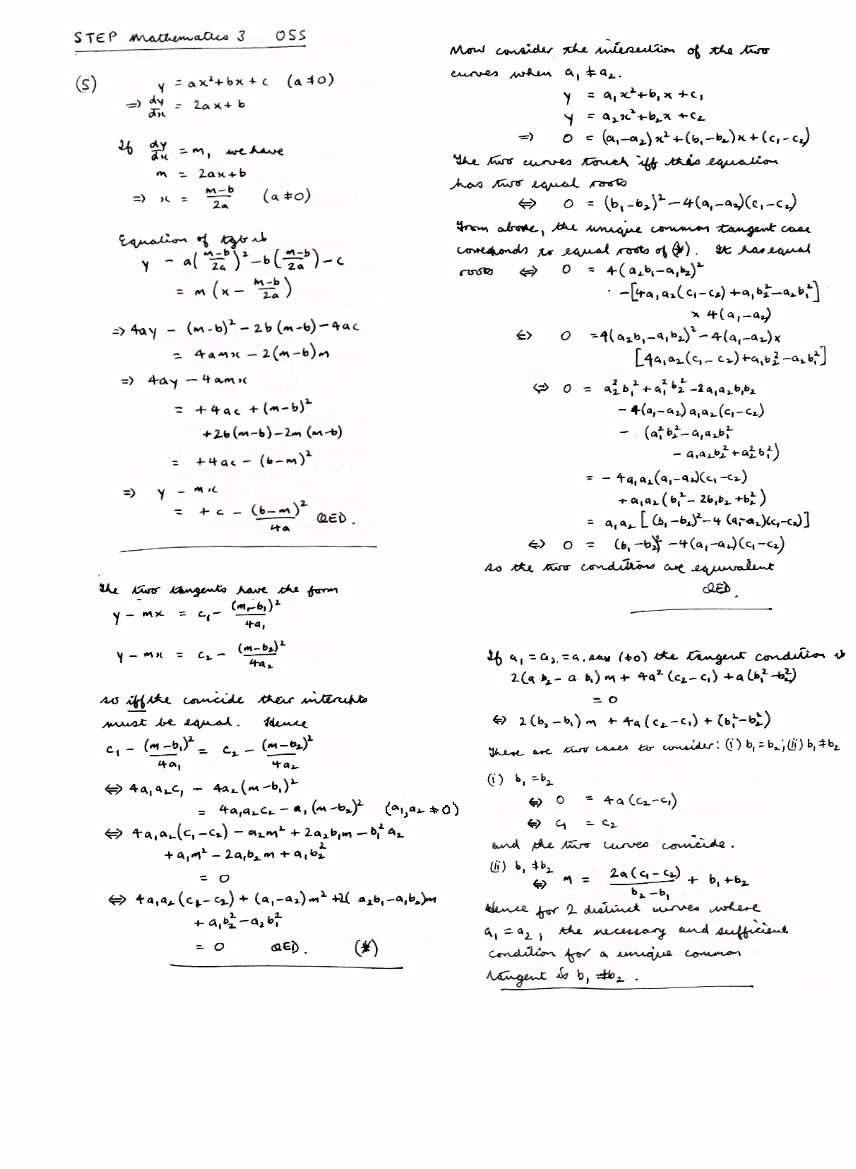 STEP Mathematics 3 OSS
(5) y = ax²+bx+c (a≠0)
⇒ dy/dx = 2ax+b
If dy/dx = m, we have
m = 2ax+b
⇒ x = (m-b)/2a (a≠0)
Equation of tgt is
y - a((m-b)/2a)² - b((m-b)/2a) - c
= m(x - (m-b)/2a)
⇒ 4ay - (m-b)² - 2b(m-b) - 4ac
= 4amx - 2(m-b)m
⇒ 4ay - 4amx
= +4ac + (m-b)²
+2b(m-b) - 2m(m-b)
= +4ac - (b-m)²
⇒ y - mx
= +c - (b-m)²/4a QED.
The two tangents have the form
y - mx = c₁ - (m-b₁)²/4a₁
y - mx = c₂ - (m-b₂)²/4a₂
so iff the coincide their intercepts
must be equal. Hence
c₁ - (m-b₁)²/4a₁ = c₂ - (m-b₂)²/4a₂
⇔ 4a₁a₂c₁ - 4a₂(m-b₁)²
= 4a₁a₂c₂ - a₁(m-b₂)² (a₁,a₂ ≠ 0)
⇔ 4a₁a₂(c₁-c₂) - a₂m² + 2a₂b₁m - b₁²a₂
+ a₁m² - 2a₁b₂m + a₁b₂²
= 0
⇔ 4a₁a₂(c₁-c₂) + (a₁-a₂)m² + 2(a₂b₁-a₁b₂)m
+ a₁b₂² - a₂b₁²
= 0 QED. (*)
Now consider the intersection of the two
curves when a₁ ≠ a₂.
y = a₁x²+b₁x+c₁
y = a₂x²+b₂x+c₂
⇒ 0 = (a₁-a₂)x²+(b₁-b₂)x+(c₁-c₂)
The two curves touch iff this equation
has two equal roots
⇔ 0 = (b₁-b₂)²-4(a₁-a₂)(c₁-c₂)
From above, the unique common tangent case
corresponds to equal roots of (*). It has equal
roots ⇔ 0 = 4(a₂b₁-a₁b₂)²
-[4a₁a₂(c₁-c₂)+a₁b₂²-a₂b₁²]
× 4(a₁-a₂)
⇔ 0 = 4(a₂b₁-a₁b₂)²-4(a₁-a₂)×
[4a₁a₂(c₁-c₂)+a₁b₂²-a₂b₁²]
⇔ 0 = a₂²b₁²+a₁²b₂²-2a₁a₂b₁b₂
-4(a₁-a₂)a₁a₂(c₁-c₂)
- (a₁²b₂²-a₁a₂b₁²
- a₁a₂b₂²+a₂²b₁²)
= -4a₁a₂(a₁-a₂)(c₁-c₂)
+a₁a₂(b₁²-2b₁b₂+b₂²)
= a₁a₂[(b₁-b₂)²-4(a₁-a₂)(c₁-c₂)]
⇔ 0 = (b₁-b₂)²-4(a₁-a₂)(c₁-c₂)
so the two conditions are equivalent
QED.
If a₁ = a₂ = a, say (≠0) the tangent condition is
2(a b₂ - a b₁)m + 4a²(c₂-c₁) + a(b₁²-b₂²)
= 0
⇔ 2(b₂-b₁)m + 4a(c₂-c₁) + (b₁²-b₂²)
There are two cases to consider: (i) b₁=b₂; (ii) b₁≠b₂
(i) b₁=b₂
⇔ 0 = 4a(c₂-c₁)
⇔ c₁ = c₂
and the two curves coincide.
(ii) b₁≠b₂
⇔ m = 2a(c₁-c₂)/(b₂-b₁) + b₁+b₂
Hence for 2 distinct curves where
a₁ = a₂, the necessary and sufficient
condition for a unique common
tangent is b₁ ≠ b₂.